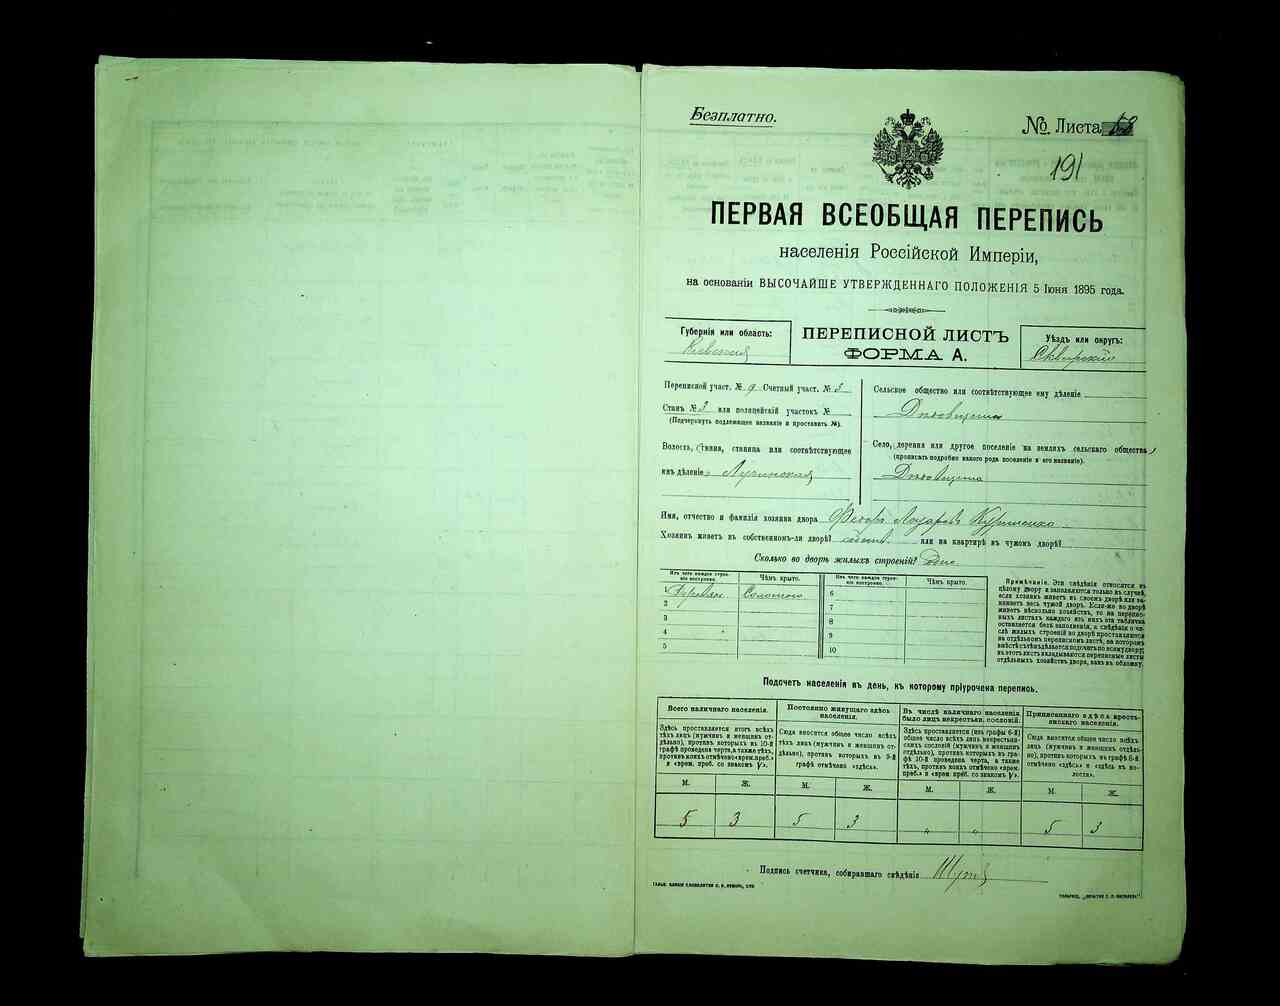 Безплатно.
№ Листа 58
191
ПЕРВАЯ ВСЕОБЩАЯ ПЕРЕПИСЬ
населенія Россійской Имперіи,
на основаніи ВЫСОЧАЙШЕ УТВЕРЖДЕННАГО ПОЛОЖЕНІЯ 5 Іюня 1895 года.
Губернія или область:
Кіевская
ПЕРЕПИСНОЙ ЛИСТЪ
ФОРМА А.
Уѣздъ или округъ:
Сквирскій
Переписной участ. № 9 Счетный участ. № 3
Станъ № 3 или полицейскій участокъ №
(Подчеркнуть подлежащее названіе и проставить №).
Волость, гмина, станица или соотвѣтствующее
имъ дѣленіе: Лучинская
Сельское общество или соотвѣтствующее ему дѣленіе
Село, деревня или другое поселеніе на земляхъ сельскаго общества
(прописать подробно какого рода поселеніе и его названіе).
Имя, отчество и фамилія хозяина двора Федоръ Лазаревъ
Хозяинъ живетъ въ собственномъ-ли дворѣ? собств. или на квартирѣ въ чужомъ дворѣ?
Сколько во дворѣ жилыхъ строеній? Одно
Изъ чего каждое строеніе построено.
Чѣмъ крыто.
Изъ чего каждое строеніе построено.
Чѣмъ крыто.
Соломою
6
2
7
3
8
4
9
5
10
Примѣчаніе. Эти свѣдѣнія относятся къ
цѣлому двору и заполняются только въ случаѣ,
если хозяинъ живетъ въ своемъ дворѣ или занимаетъ
весь чужой дворъ. Если-же во дворѣ
живетъ нѣсколько хозяйствъ, то на переписныхъ
листахъ каждаго изъ нихъ эта табличка
оставляется безъ заполненія, а свѣдѣнія о числѣ
жилыхъ строеній во дворѣ проставляются
на отдѣльномъ переписномъ листѣ, на которомъ
вмѣстѣ съ тѣмъ дѣлается подсчетъ по всему двору;
въ этотъ листъ вкладываются переписные листы
отдѣльныхъ хозяйствъ двора, какъ въ обложку.
Подсчетъ населенія въ день, къ которому пріурочена перепись.
Всего наличнаго населенія.
Постоянно живущаго здѣсь населенія.
Въ числѣ наличнаго населенія было лицъ некрестьян. сословій.
Приписаннаго здѣсь крестьянскаго населенія.
Здѣсь проставляется итогъ всѣхъ тѣхъ лицъ (мужчинъ и женщинъ отдѣльно), противъ которыхъ въ 10-й графѣ проведена черта, а также тѣхъ, противъ коихъ отмѣчено «врем. преб.» и «врем. преб. со знакомъ V».
Сюда вносится общее число всѣхъ тѣхъ лицъ (мужчинъ и женщинъ отдѣльно), противъ которыхъ въ 9-й графѣ отмѣчено «здѣсь».
Здѣсь проставляется (изъ графы 6-й) общее число всѣхъ лицъ некрестьянскихъ сословій (мужчинъ и женщинъ отдѣльно), противъ которыхъ въ графѣ 10-й проведена черта, а также тѣхъ, противъ коихъ отмѣчено «врем. преб.» и «врем. преб. со знакомъ V».
Сюда вносится общее число всѣхъ лицъ (мужчинъ и женщинъ отдѣльно), противъ которыхъ въ графѣ 8-й отмѣчено «здѣсь» и «здѣсь въ волости».
М. Ж. М. Ж. М. Ж. М. Ж.
5 3 5 3 „ „ 5 3
Подпись счетчика, собиравшаго свѣдѣнія